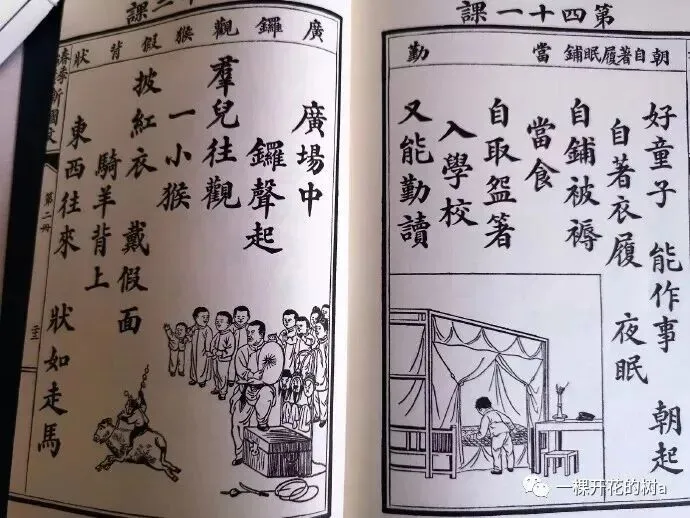 第四十一課
朝自著履眠鋪當勤
好童子 能作事 朝起
自著衣履 夜眠
自鋪被褥
當食
自取盌箸
入學校
又能勤讀
二課
廣鑼觀猴假背狀
廣場中
鑼聲起
羣兒往觀
一小猴
披紅衣 戴假面
騎羊背上
東西往來 狀如走馬
春季新國文
第二冊
一棵开花的树a